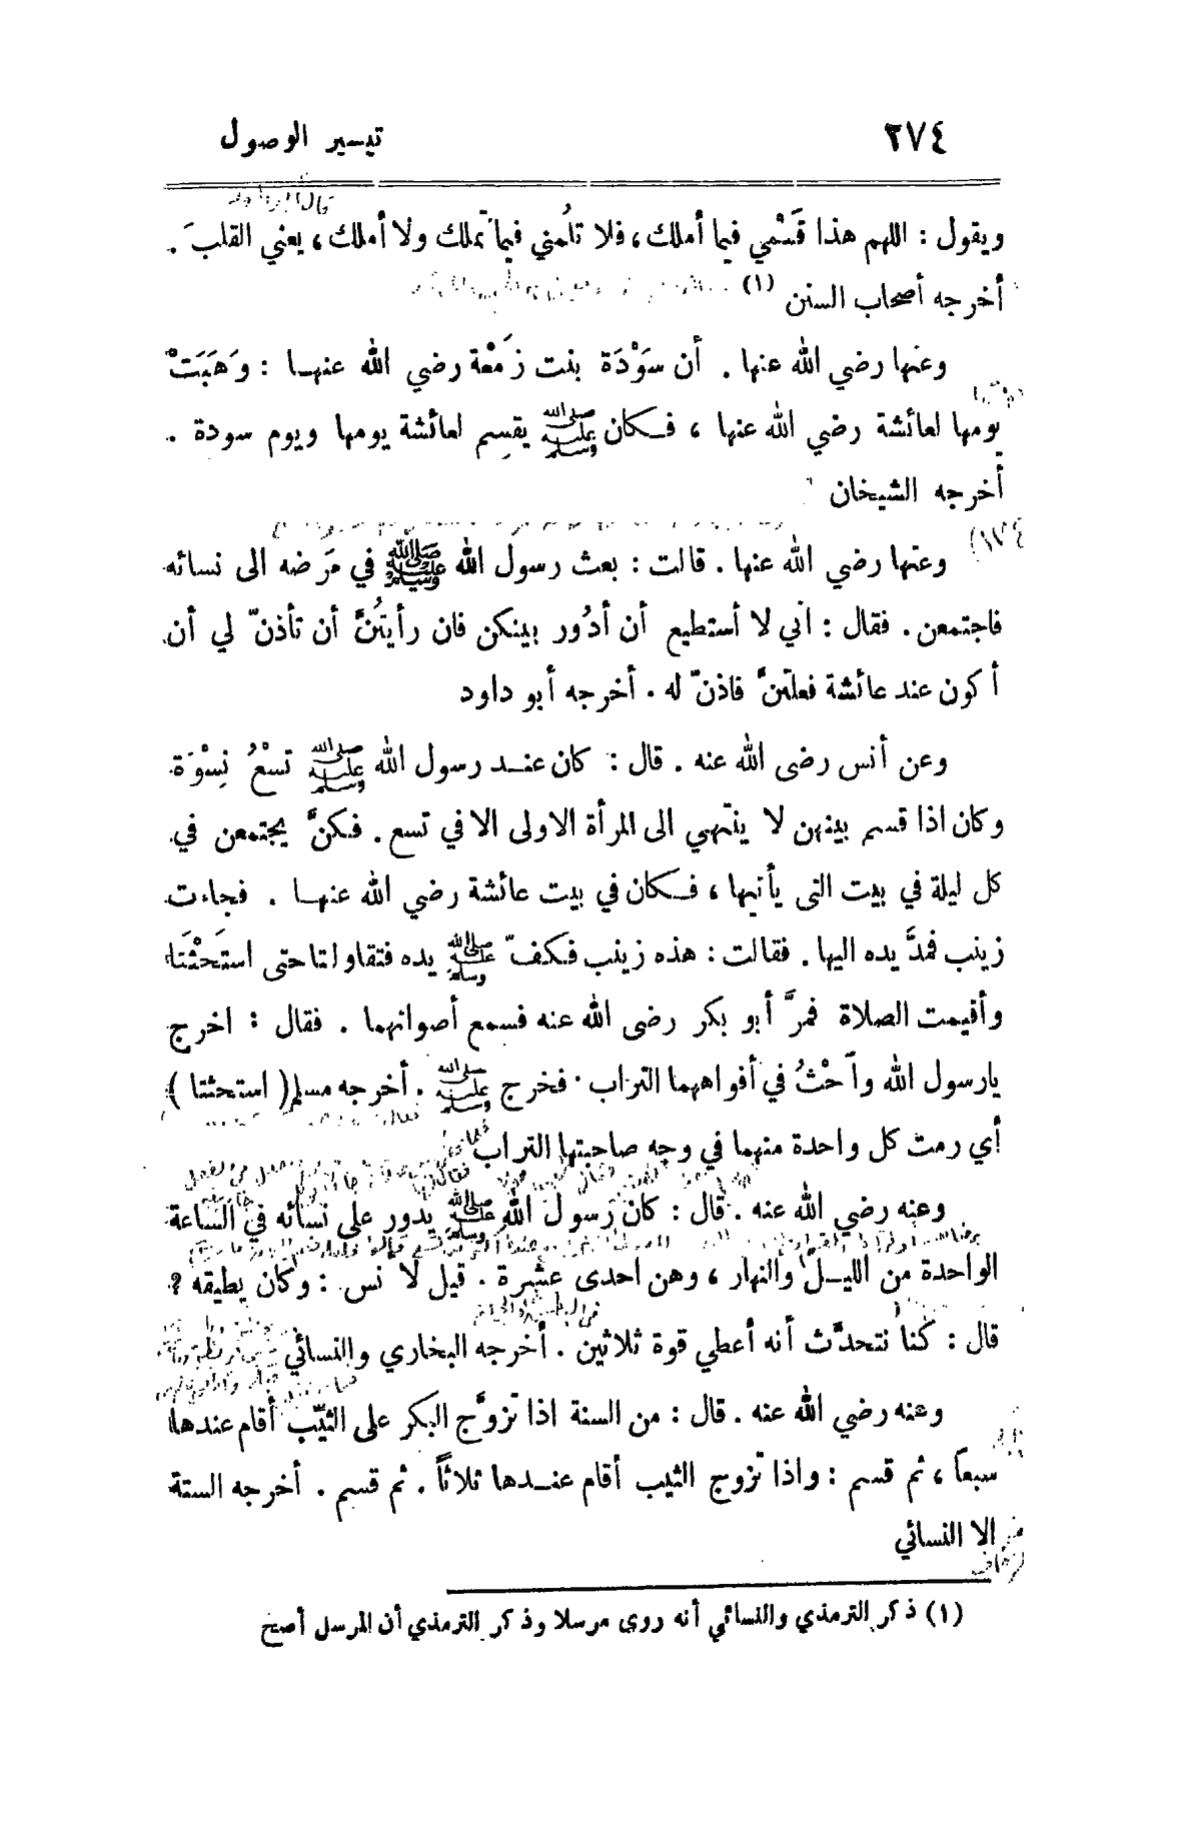 ٢٧٤ تيسير الوصول
ويقول : اللهم هذا قَسْمي فيما أملك، فلا تلُمني فيما تملك ولا أملك، يعني القلبَ .
أخرجه أصحاب السنن (١)
وعنها رضي الله عنها . أن سَوْدَة بنت زَمْعَة رضي الله عنهـا : وَهَبَتْ
يومها لعائشة رضي الله عنها ، فـكان ﷺ يقسِم لعائشة يومها ويوم سودة .
أخرجه الشيخان
وعنها رضي الله عنها . قالت : بعث رسول الله ﷺ في مَرَضه الى نسائه
فاجتمعن . فقال : اني لا أستطيع أن أدُور بينكن فان رأيتُنَّ أن تأذنّ لي أن
أكون عند عائشة فعلتنَّ فاذنّ له . أخرجه أبو داود
وعن أنس رضى الله عنه . قال : كان عنـد رسول الله ﷺ تسْعُ نِسْوَة
وكان اذا قسم بينهن لا ينتهي الى المرأة الاولى الا في تسع . فكنَّ يجتمعن في
كل ليلة في بيت التى يأتيها ، فـكان في بيت عائشة رضي الله عنهـا . فجاءت
زينب فمدَّ يده اليها . فقالت : هذه زينب فكفّ ﷺ يده فتقاولتا حتى استَحْثَتَا
وأقيمت الصلاة فمرَّ أبو بكر رضى الله عنه فسمع أصواتهما . فقال : اخرج
يارسول الله واَحْثُ في أفواههما التراب . فخرج ﷺ . أخرجه مسلم ( استحثتا )
أي رمت كل واحدة منهما في وجه صاحبتها التراب
وعنه رضي الله عنه . قال : كان رسول الله ﷺ يدور على نسائه في الساعة
الواحدة من الليـل والنهار ، وهن احدى عشرة . قيل لأنس : وكان يطيقه ؟
قال : كنا نتحدَّث أنه أعطي قوة ثلاثين . أخرجه البخاري والنسائي
وعنه رضي الله عنه . قال : من السنة اذا تزوَّج البكر على الثيّب أقام عندها
سبعاً ، ثم قسم : واذا تزوج الثيب أقام عنـدها ثلاثاً . ثم قسم . أخرجه الستة
الا النسائي
(١) ذكر الترمذي والنسائي أنه روى مرسلا وذكر الترمذي أن المرسل أصح